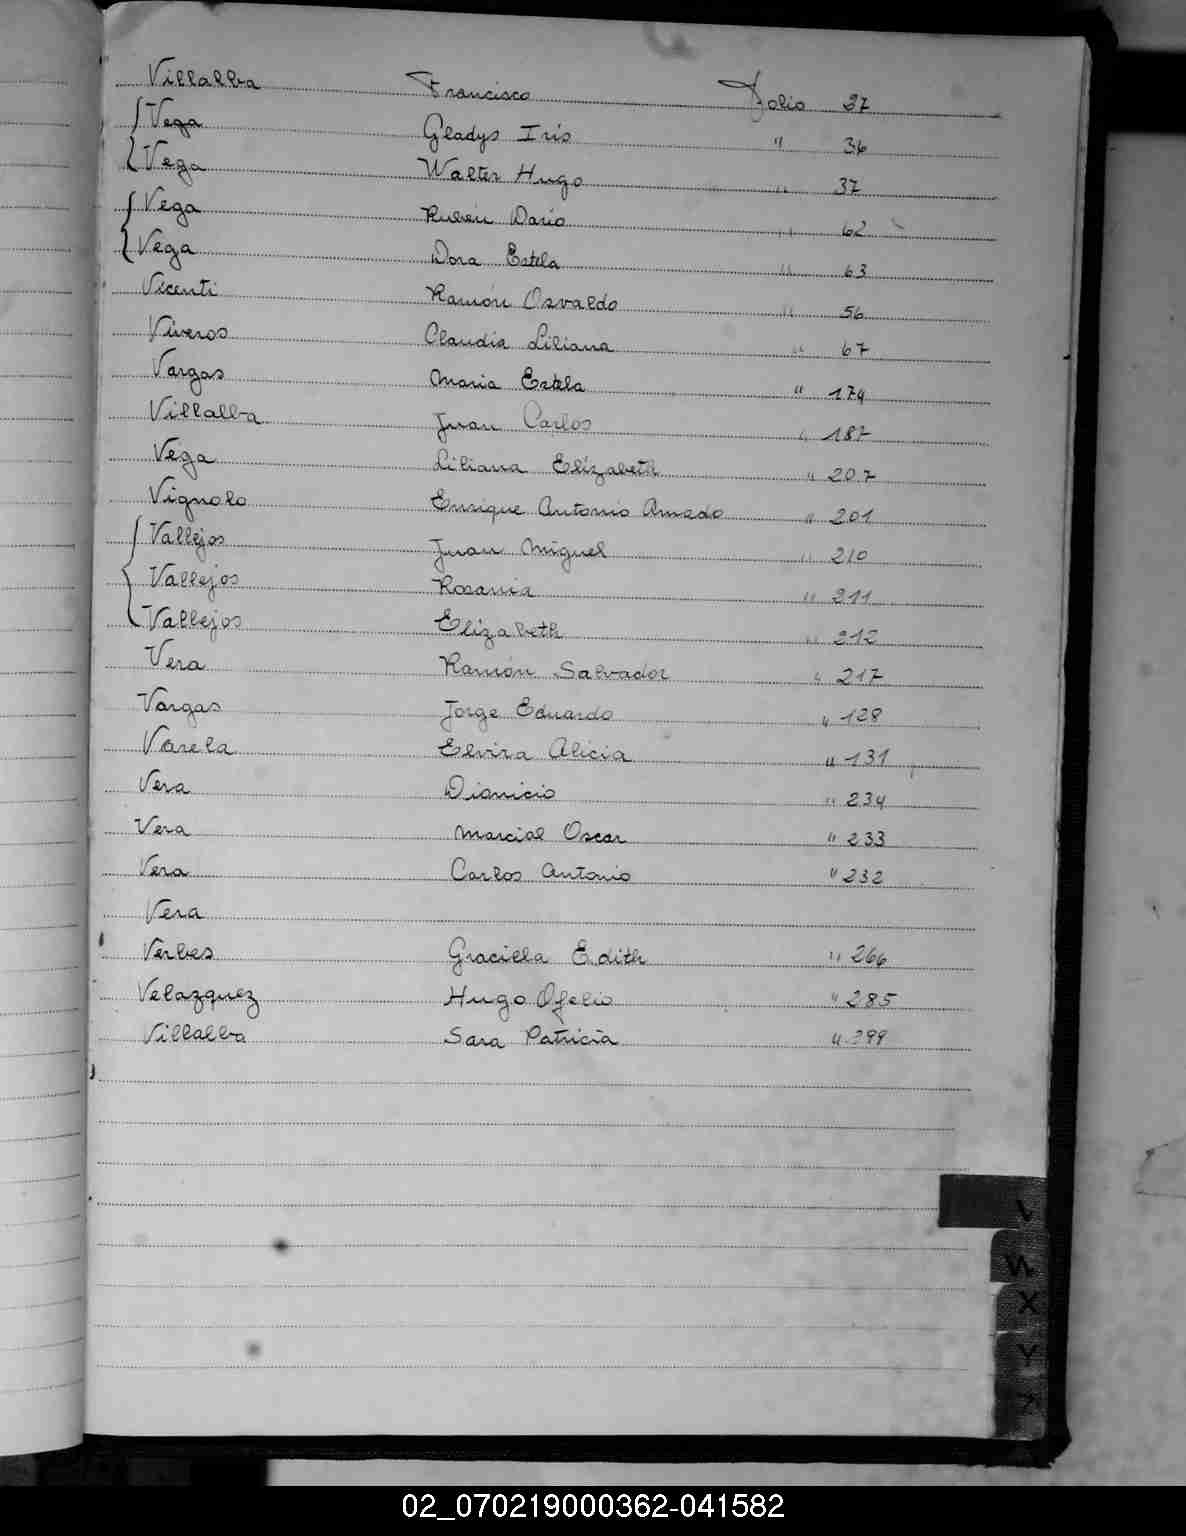 Villalba Francisco Folio 27
Vega Gladys Iris " 36
Vega Walter Hugo " 37
Vega Rubén Dario " 62
Vega Dora Estela " 63
Vicenti Ramón Osvaldo " 56
Viveros Claudia Liliana " 67
Vargas Maria Estela " 174
Villalba Juan Carlos " 187
Vega Liliana Elizabeth " 207
Vignolo Enrique Antonio Amado " 201
Vallejos Juan Miguel " 210
Vallejos Rosania " 211
Vallejos Elizabeth " 212
Vera Ramón Salvador " 217
Vargas Jorge Eduardo " 128
Varela Elvira Alicia " 131
Vera Dionicio " 234
Vera Marcial Oscar " 233
Vera Carlos Antonio " 232
Vera
Verbes Graciela Edith " 266
Velazquez Hugo Ofelio " 285
Villalba Sara Patricia " 299
V
W
X
Y
Z
02_070219000362-041582